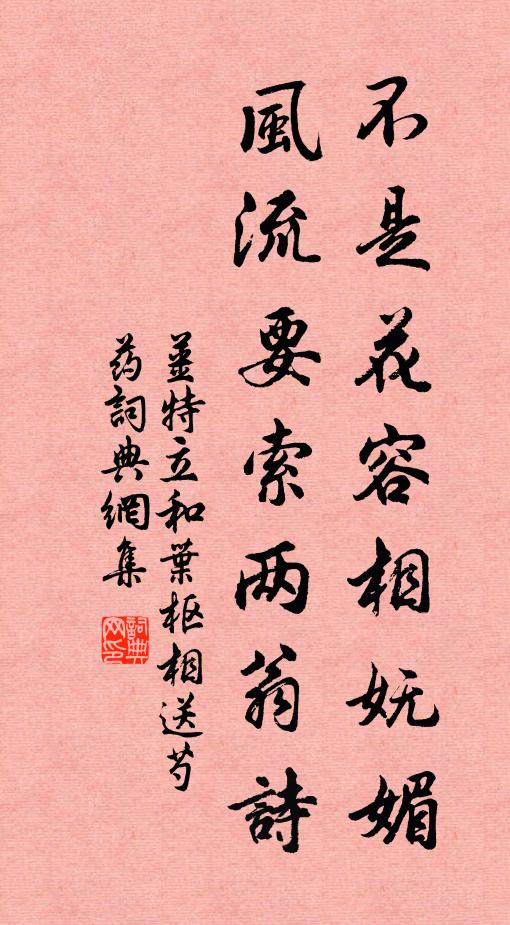 不是花容相妩媚
風流要索两翁詩
姜特立和葉枢相送芍
药詞典網集
詞典
网印